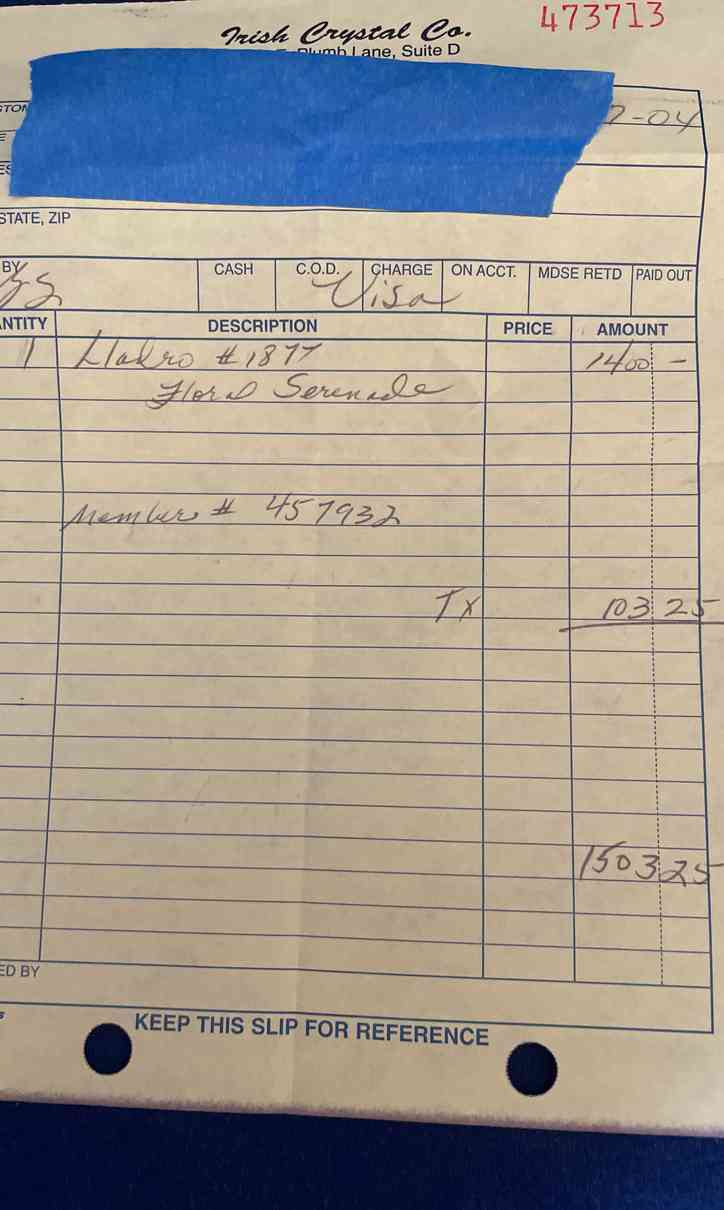 Irish Crystal Co.
473713
Plumb Lane, Suite D
-04
STATE, ZIP
BY CASH C.O.D. CHARGE ON ACCT. MDSE RETD PAID OUT
Visa
NTITY DESCRIPTION PRICE AMOUNT
1 Lladro #1877 1400 -
Floral Serenade
Member # 457932
TX 103 25
1503 25
ED BY
KEEP THIS SLIP FOR REFERENCE